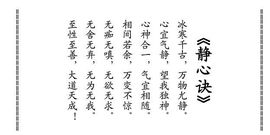 《静心诀》
冰寒千古，万物尤静。
心宜气静，望我独神。
心神合一，气宜相随。
相间若余，万变不惊。
无痴无嗔，无欲无求。
无舍无弃，无为无我。
至性至善，大道天成！